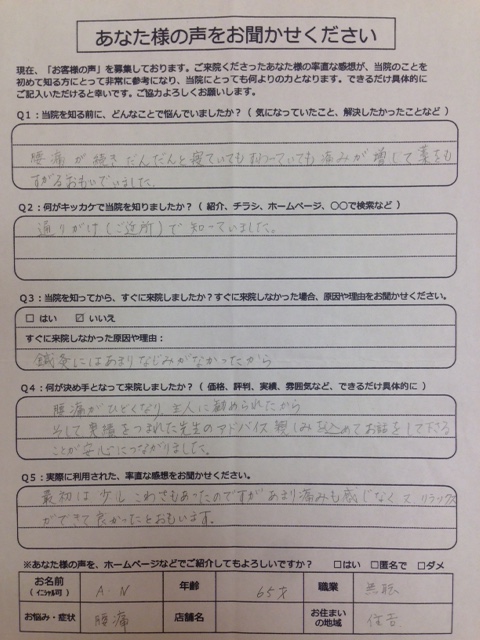 あなた様の声をお聞かせください
現在、「お客様の声」を募集しております。ご来院くださったあなた様の率直な感想が、当院のことを
初めて知る方にとって非常に参考になり、当院にとっても何よりの力となります。できるだけ具体的に
ご記入いただけると幸いです。ご協力よろしくお願いします。
Q1：当院を知る前に、どんなことで悩んでいましたか？（ 気になっていたこと、解決したかったことなど ）
腰痛が続きだんだんと寝ていてもすわっていても痛みが増して薬をも
すがるおもいでいました。
Q2：何がキッカケで当院を知りましたか？（ 紹介、チラシ、ホームページ、○○で検索など ）
通りがけ(ご近所)で知っていました。
Q3：当院を知ってから、すぐに来院しましたか？すぐに来院しなかった場合、原因や理由をお聞かせください。
□ はい ☑ いいえ
すぐに来院しなかった原因や理由：
鍼灸にはあまりなじみがなかったから
Q4：何が決め手となって来院しましたか？（ 価格、評判、実績、雰囲気など、できるだけ具体的に ）
腰痛がひどくなり、主人に勧められたから
そして実積をつまれた先生のアドバイス親しみを込めてお話をして下さる
ことが安心につながりました。
Q5：実際に利用された、率直な感想をお聞かせください。
最初は少しこわさもあったのですがあまり痛みも感じなく リラックス
ができて良かったとおもいます。
※あなた様の声を、ホームページなどでご紹介してもよろしいですか？ □はい □匿名で □ダメ
お名前 （イニシャル可） A.N 年齢 65才 職業 無職
お悩み・症状 腰痛 店舗名 お住まいの地域 住吉